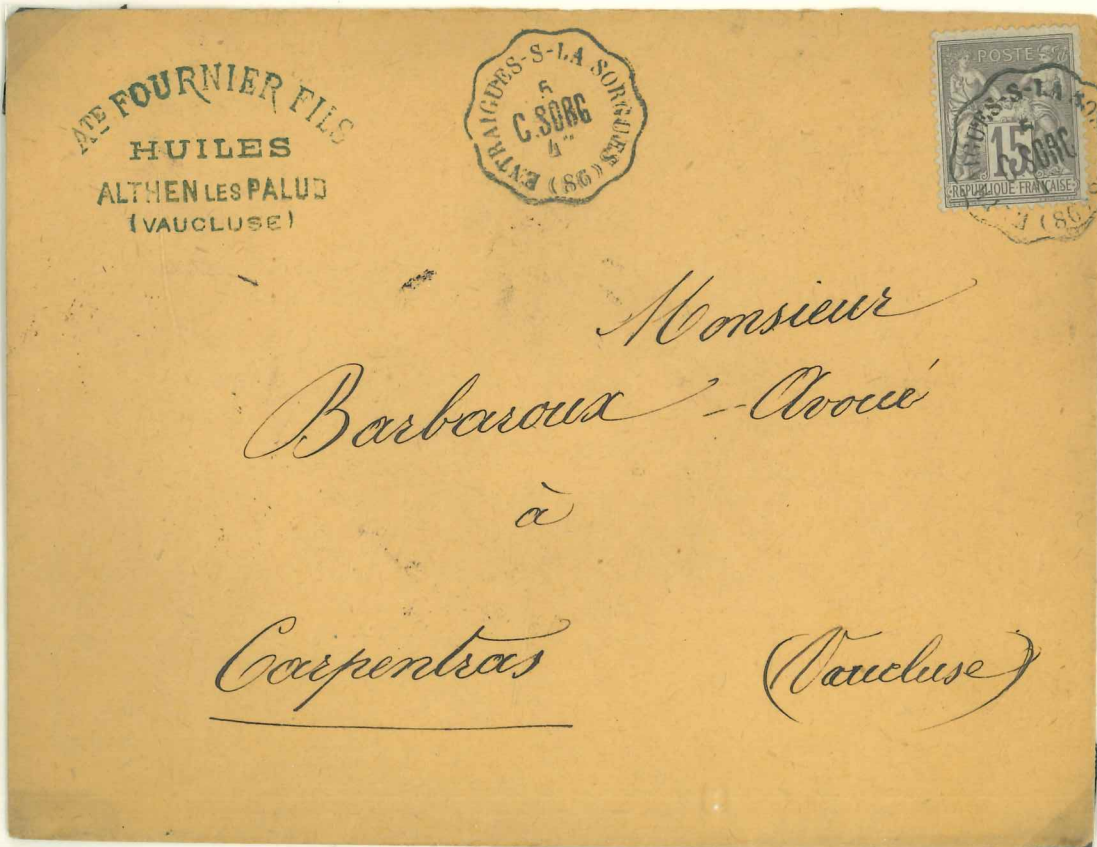 Ate FOURNIER FILS
HUILES
ALTHEN LES PALUD
(VAUCLUSE)
ENTRAIGUES-S-LA SORGUES (86)
5
C.SORG
4
POSTE
15
REPUBLIQUE FRANÇAISE
C.SORG
Monsieur
Barbaroux - Avoué
à
Carpentras (Vaucluse)